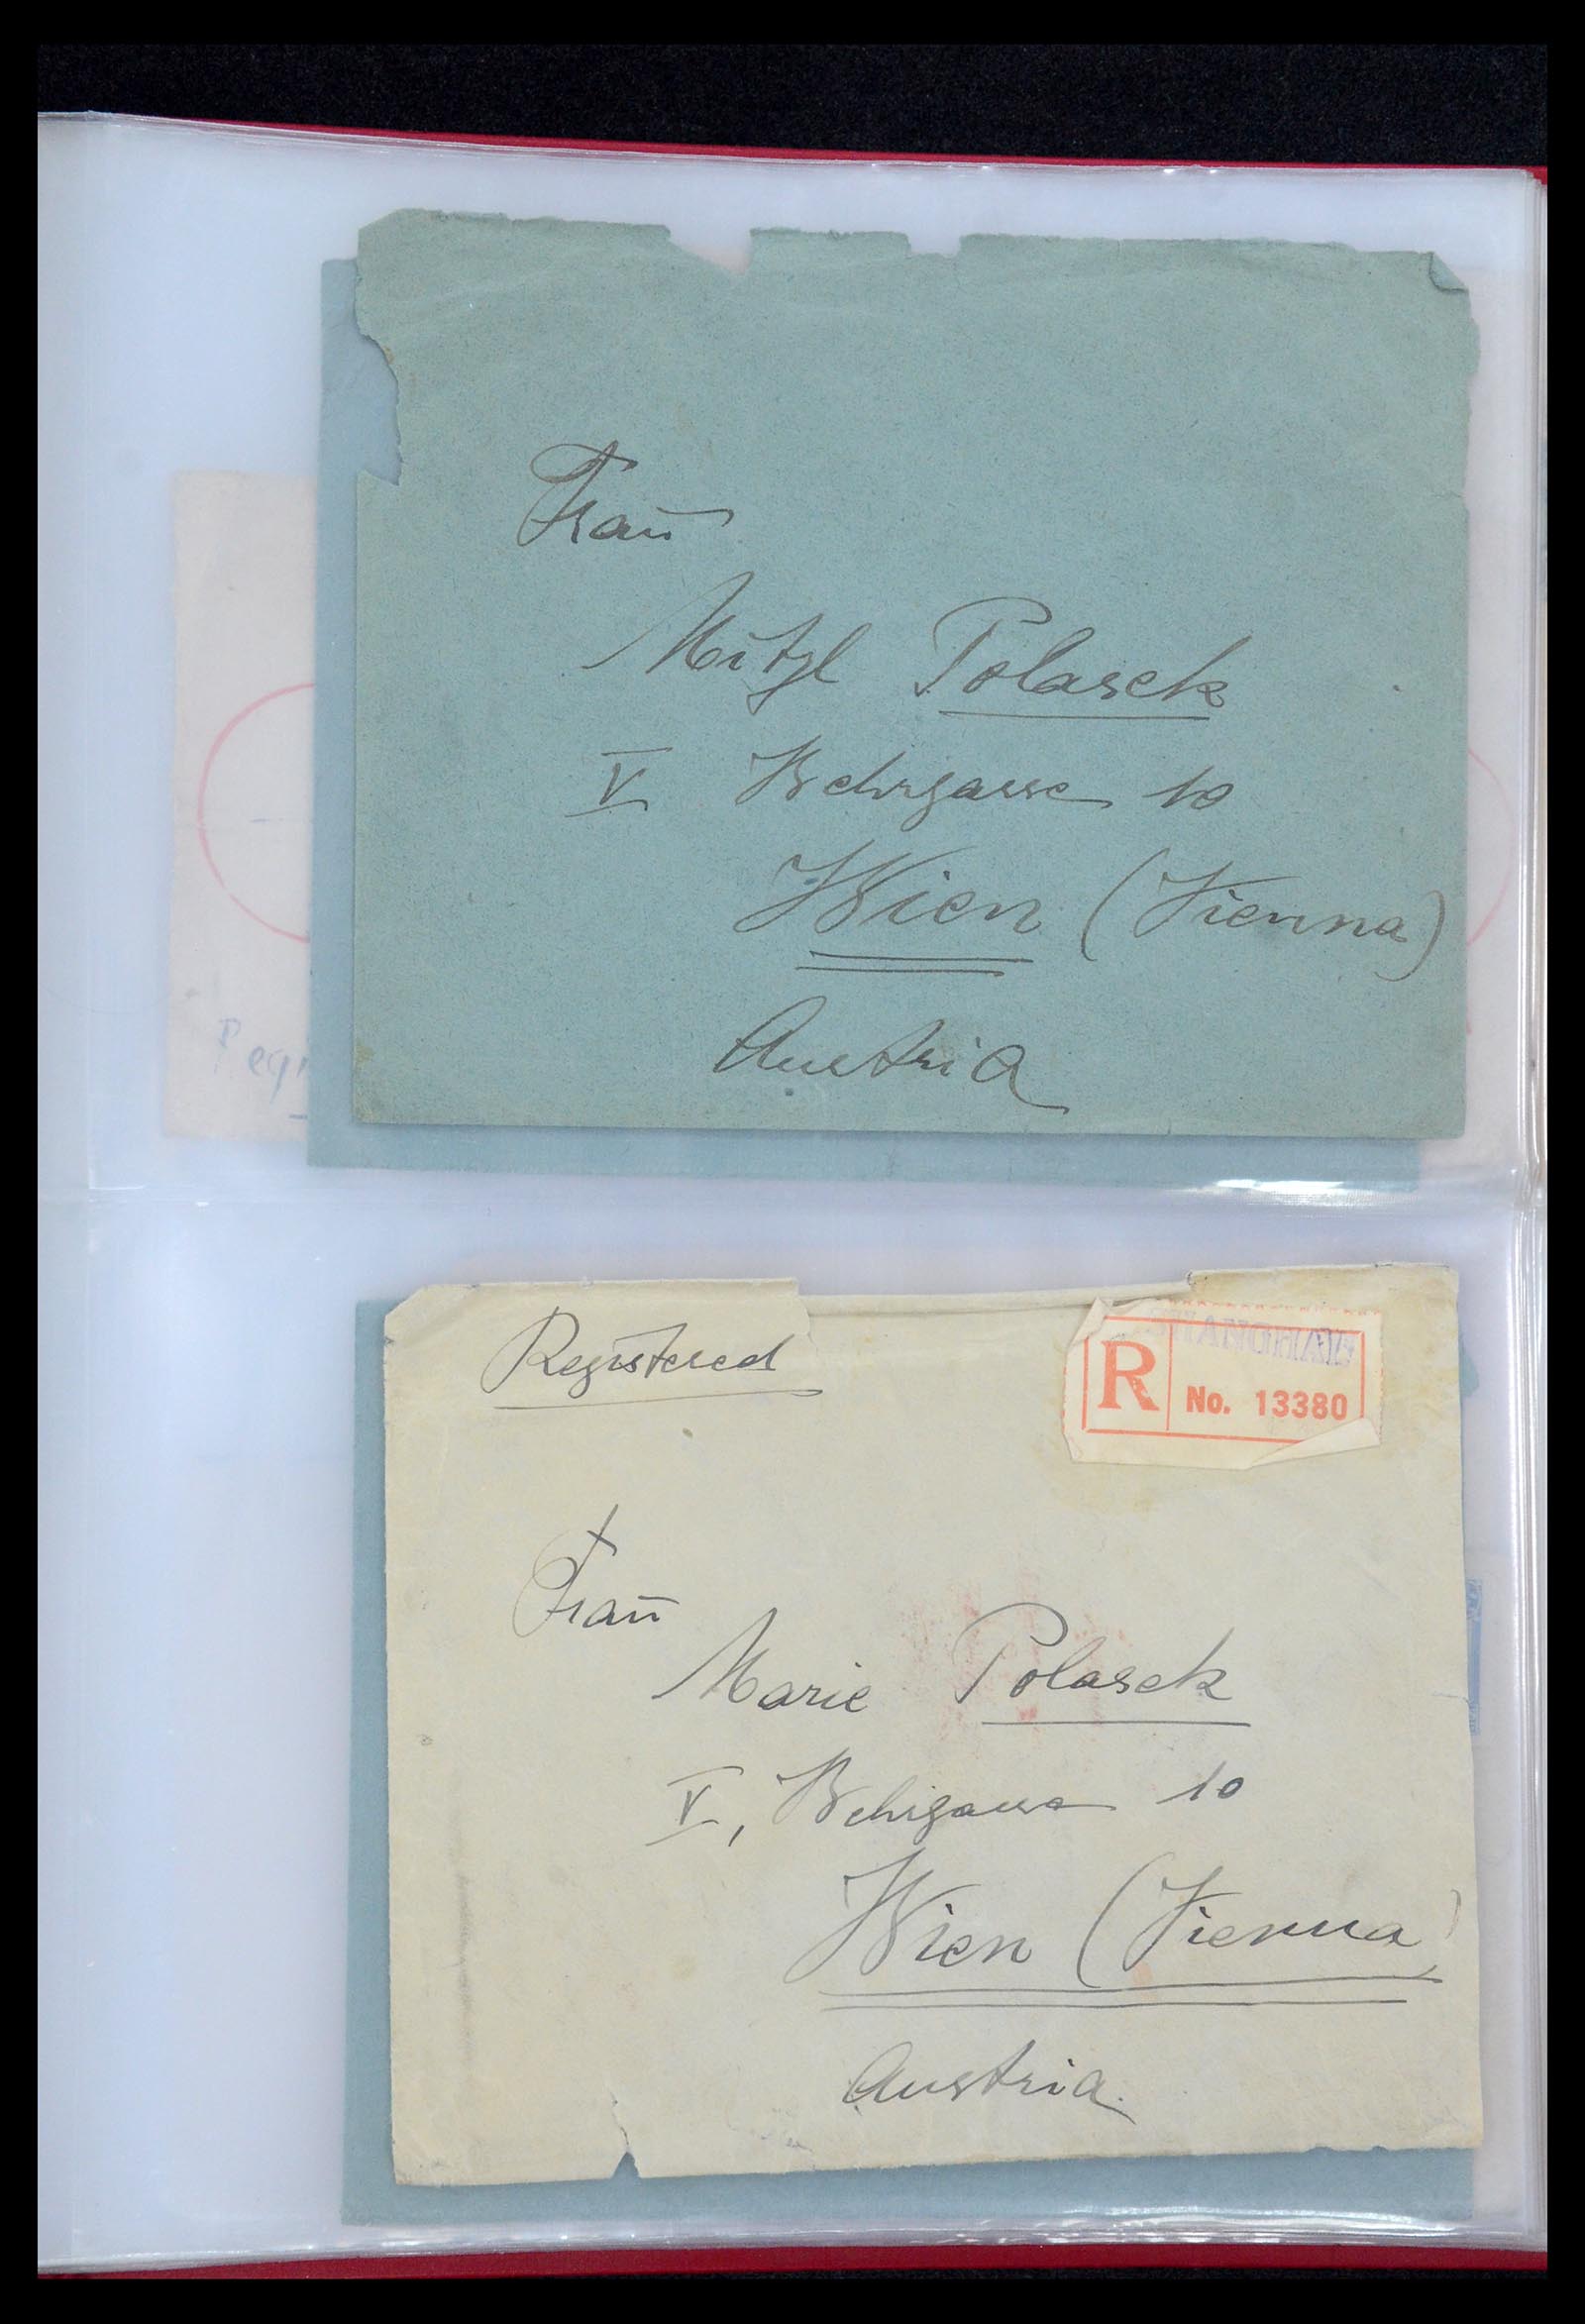 Frau
Mitzl Polasek
V Wehrgasse 10
Wien (Vienna)
Austria
Regi
Registered
SHANGHAI
R No. 13380
Frau
Marie Polasek
V, Wehrgasse 10
Wien (Vienna)
Austria.